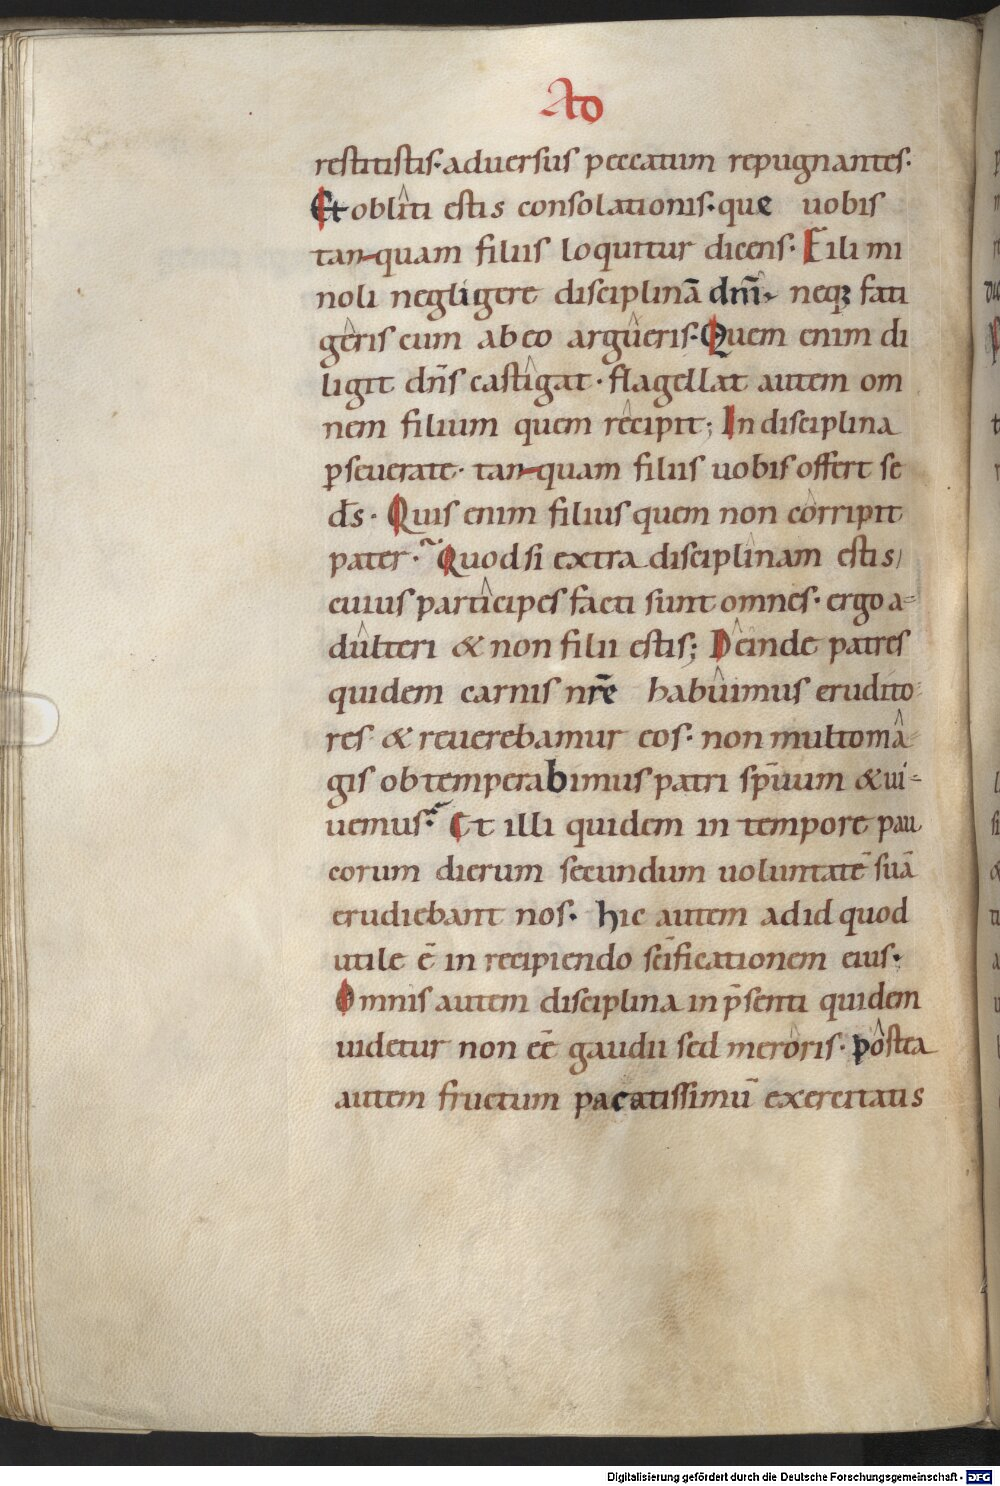 AD
restitistis· adversus peccatum repugnantes·
Et obliti estis consolationis· que uobis
tanquam filiis loquitur dicens· Fili mi
noli negligere disciplinā dnī· neq; fati
geris cum ab eo argueris· Quem enim di
ligit dn̄s castigat· flagellat autem om
nem filium quem recipit; In disciplina
ꝑseuerate· tanquam filiis uobis offert se
ds̄· Quis enim filius quem non corripit
pater· Quod si extra disciplinam estis/
cuius participes facti sunt omnes· ergo a=
dulteri & non filii estis; Deinde patres
quidem carnis nrē habuimus erudito=
res & reuerebamur eos· non multo ma=
gis obtemperabimus patri spūum & ui=
uemus· Et illi quidem in tempore pau
corum dierum secundum uoluntatē suā
erudiebant nos· hic autem ad id quod
utile ē in recipiendo scīficationem eius·
Omnis autem disciplina in p̄senti quidem
uidetur non eē gaudii sed meroris· postea
autem fructum pacatissimū exercitatis
Digitalisierung gefördert durch die Deutsche Forschungsgemeinschaft - DFG